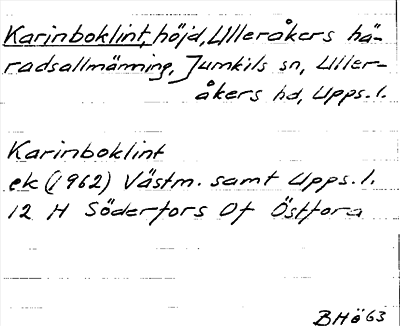 Karinboklint, höjd, Ulleråkers hä-
radsallmänning, Jumkils sn, Uller-
åkers hd, Upps. l.
Karinboklint
ek (1962) Västm. samt Upps. l.
12 H Söderfors Of Östfora
BHö63